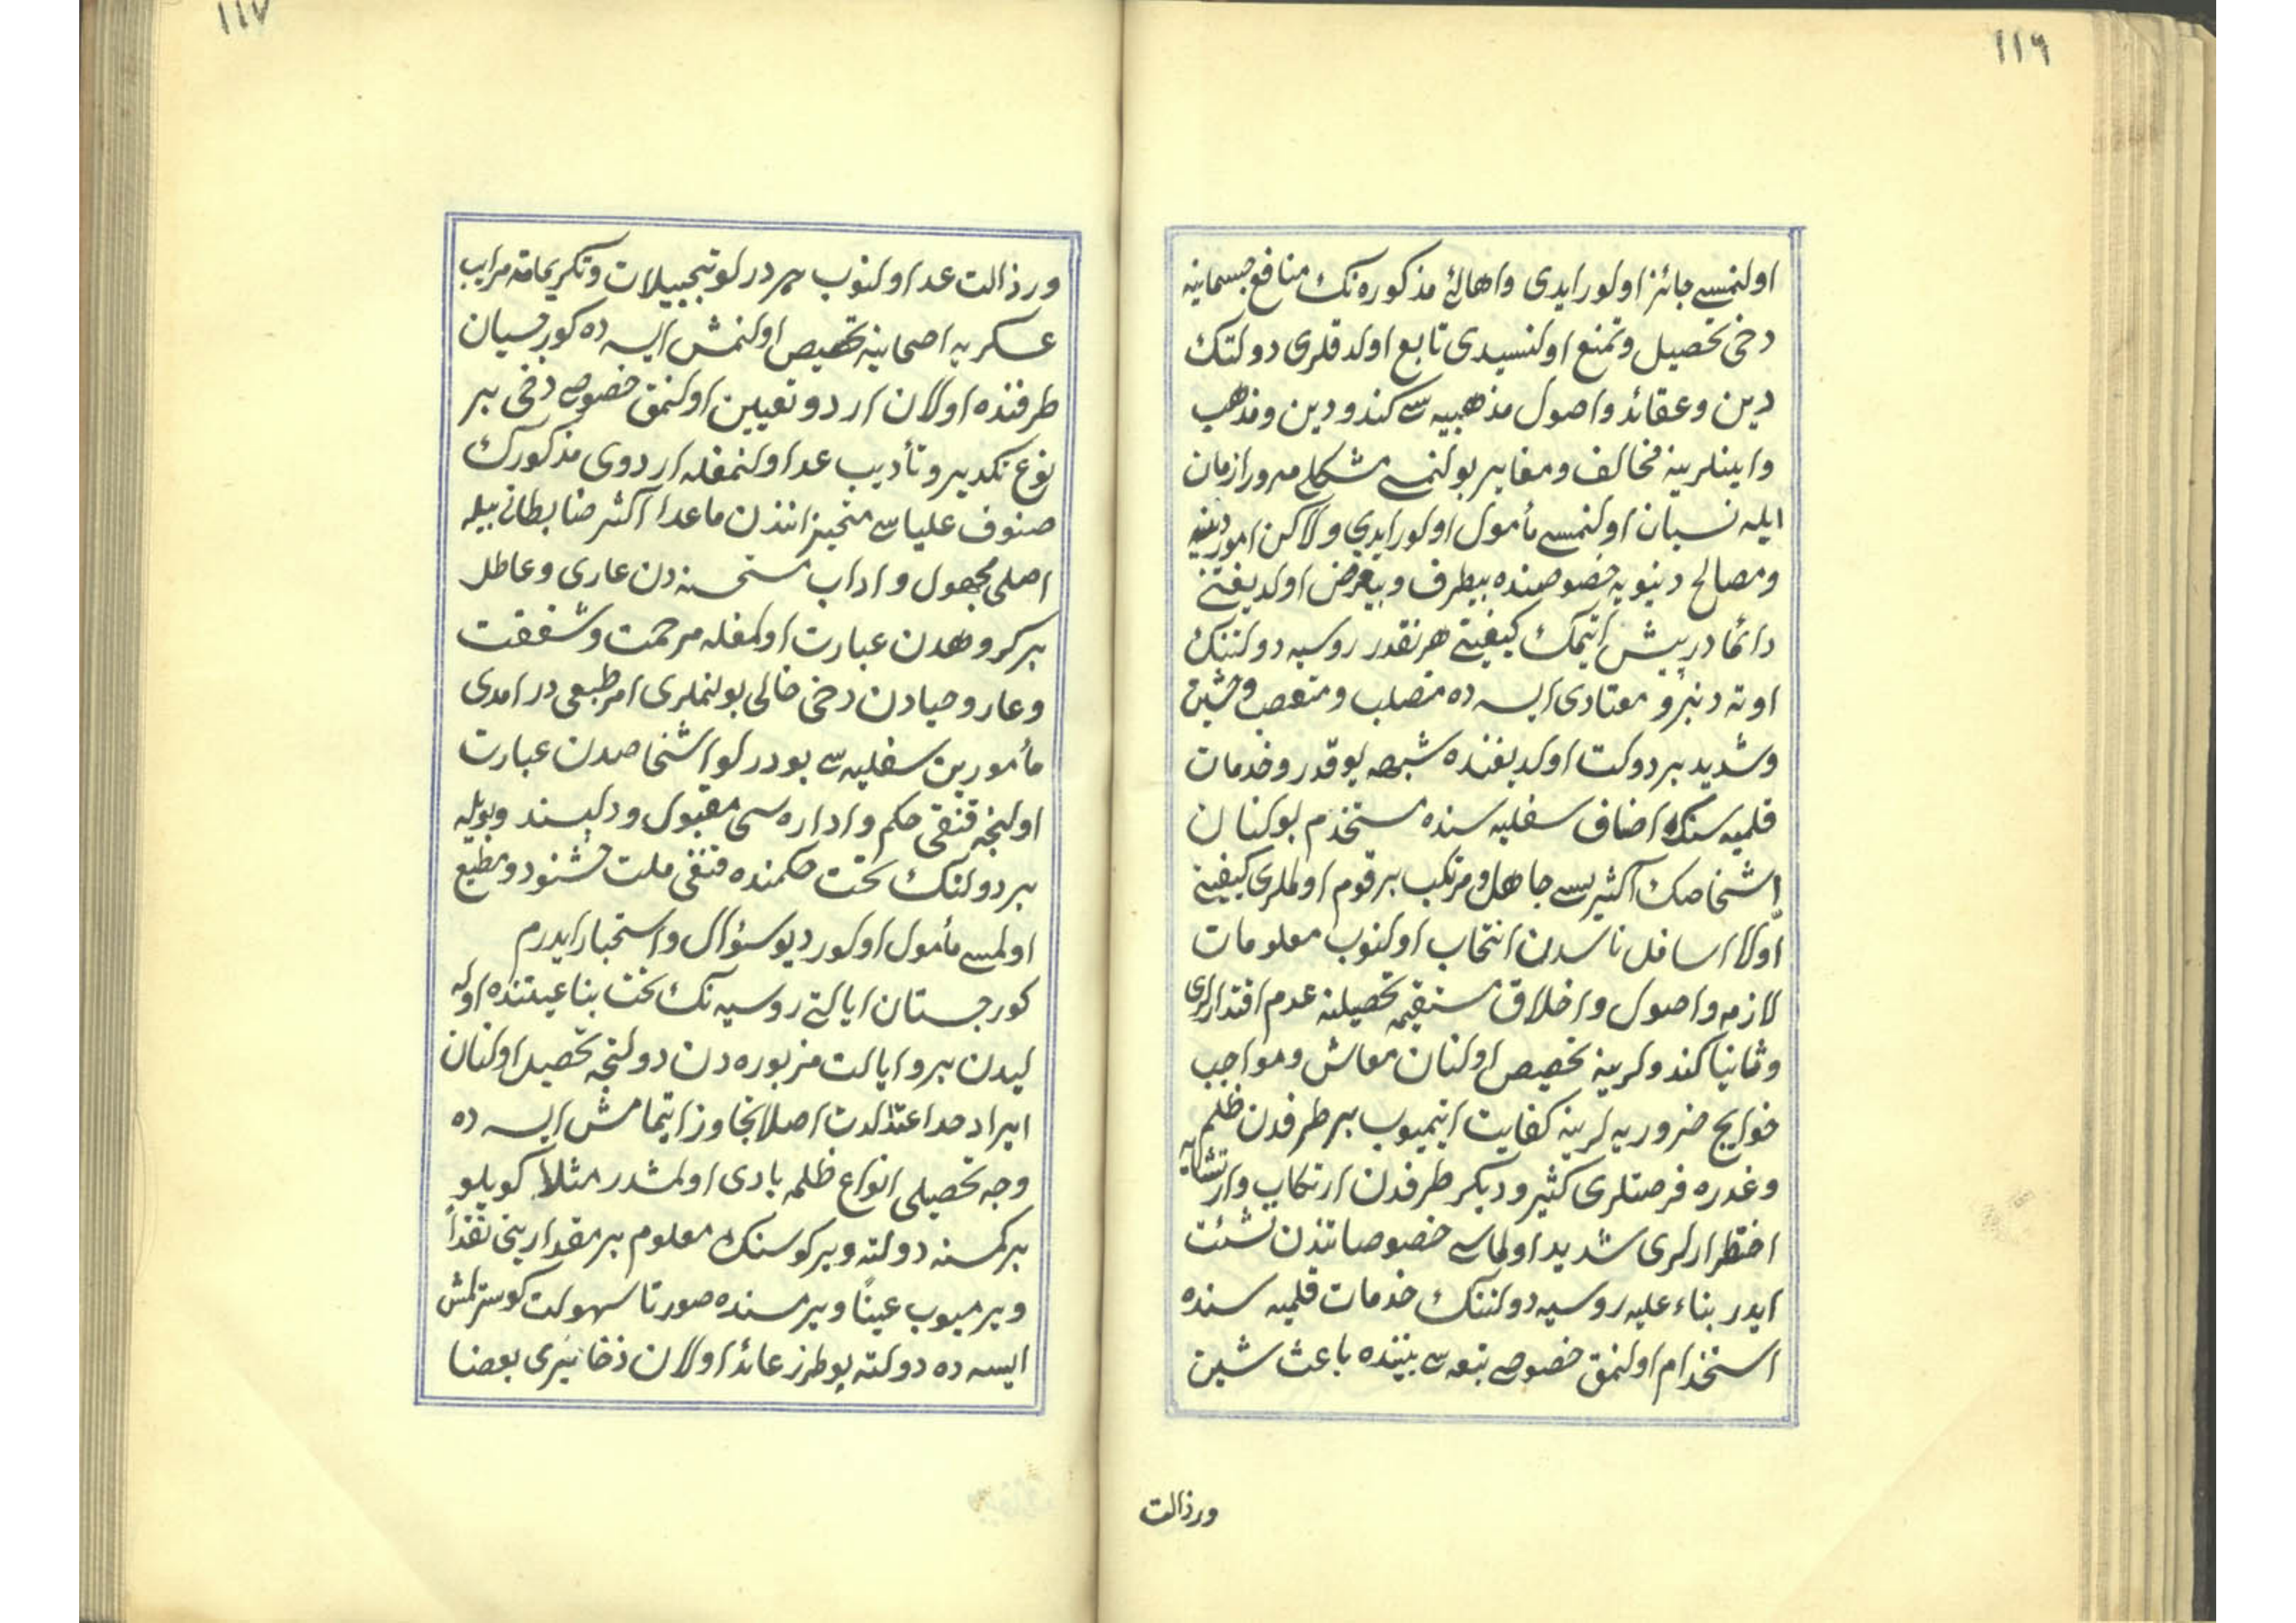 ١١٦
اولنمسی جائز اولور ایدی واهالئ مذکوره نك منافع جسمانیه
دخی تحصیل وتمتع اولنسیدی تابع اولدقلری دولتك
دین وعقائد واصول مذهبیه سی کندو دین ومذهب
واینلرینه مخالف ومغایر بولنمسی مشکلی مرور ازمان
ایله نسیان اولنمسی مأمول اولور ایدی ولاکن امور دینیه
ومصالح دنیویه خصوصنده بیطرف وبیغرض اولدیغنی
دائما درپیش ایتمك کیفیتی هرنقدر روسیه دولتنك
اوته دنبرو معتادی ایسه ده متصلب ومتعصب وخشین
وشدید بر دولت اولدیغنده شبهه یوقدر وخدمات
قلمیه سنك اصناف سفلیه سنده مستخدم بولنان
اشخاصك اکثریسی جاهل ومرتکب بر قوم اولملری کیفیتی
اولا اسافل ناسدن انتخاب اولنوب معلومات
لازمه واصول واخلاق مستقیمه تحصیلنه عدم اقتدارلری
وثانیا کندولرینه تخصیص اولنان معاش ومواجب
حوایج ضروریه لرینه کفایت ایتمیوب بر طرفدن ظلم
وغدره فرصتلری کثیر ودیگر طرفدن ارتکاب وارتشایه
اضطرارلری شدید اولماسی خصوصاتندن نشئت
ایدر بناء علیه روسیه دولتنك خدمات قلمیه سنده
استخدام اولنمق خصوصی تبعه سی بیننده باعث شین
ورذالت
١١٧
ورذالت عد اولنوب هر درلو تبجیلات وتکریمات مراتب
عسکریه اصحابینه تخصیص اولنمش ایسه ده کورجیان
طرفنده اولان اردو تعیین اولنمق خصوصی دخی بر
نوع تکدیر وتأدیب عد اولنمغله اردوی مذکورك
صنوف علیاسی متحیزانندن ماعدا اکثر ضابطانی بیله
اصلی مجهول واداب مستحسنه دن عاری وعاطل
بر کروهدن عبارت اولمغله مرحمت وشفقت
وعار وحیادن دخی خالی بولنملری امر طبیعی در امدی
مأمورین سفلیه سی بودرلو اشخاصدن عبارت
اولنجه قنقی حکم واداره سی مقبول ودلپسند وبویله
بر دولتك تحت حکمنده قنقی ملت خشنود ومطیع
اولمسی مأمول اولور دیو سؤال واستخبار ایدرم
کورجستان ایالتی روسیه نك تحت تبابعیتنده اوله
لیدن برو ایالت مزبوره دن دولتجه تحصیل اولنان
ایراد حد اعتدالدن اصلا تجاوز ایتمامش ایسه ده
وجه تحصیلی انواع ظلمه بادی اولمشدر مثلا کویلو
برکمسنه دولته ویرکوسنك معلوم بر مقدارینی نقداً
ویرمیوب عیناً ویرمسنده صورتا سهولت کوسترلمش
ایسه ده دولته بوطرز عائد اولان ذخائری بعضا